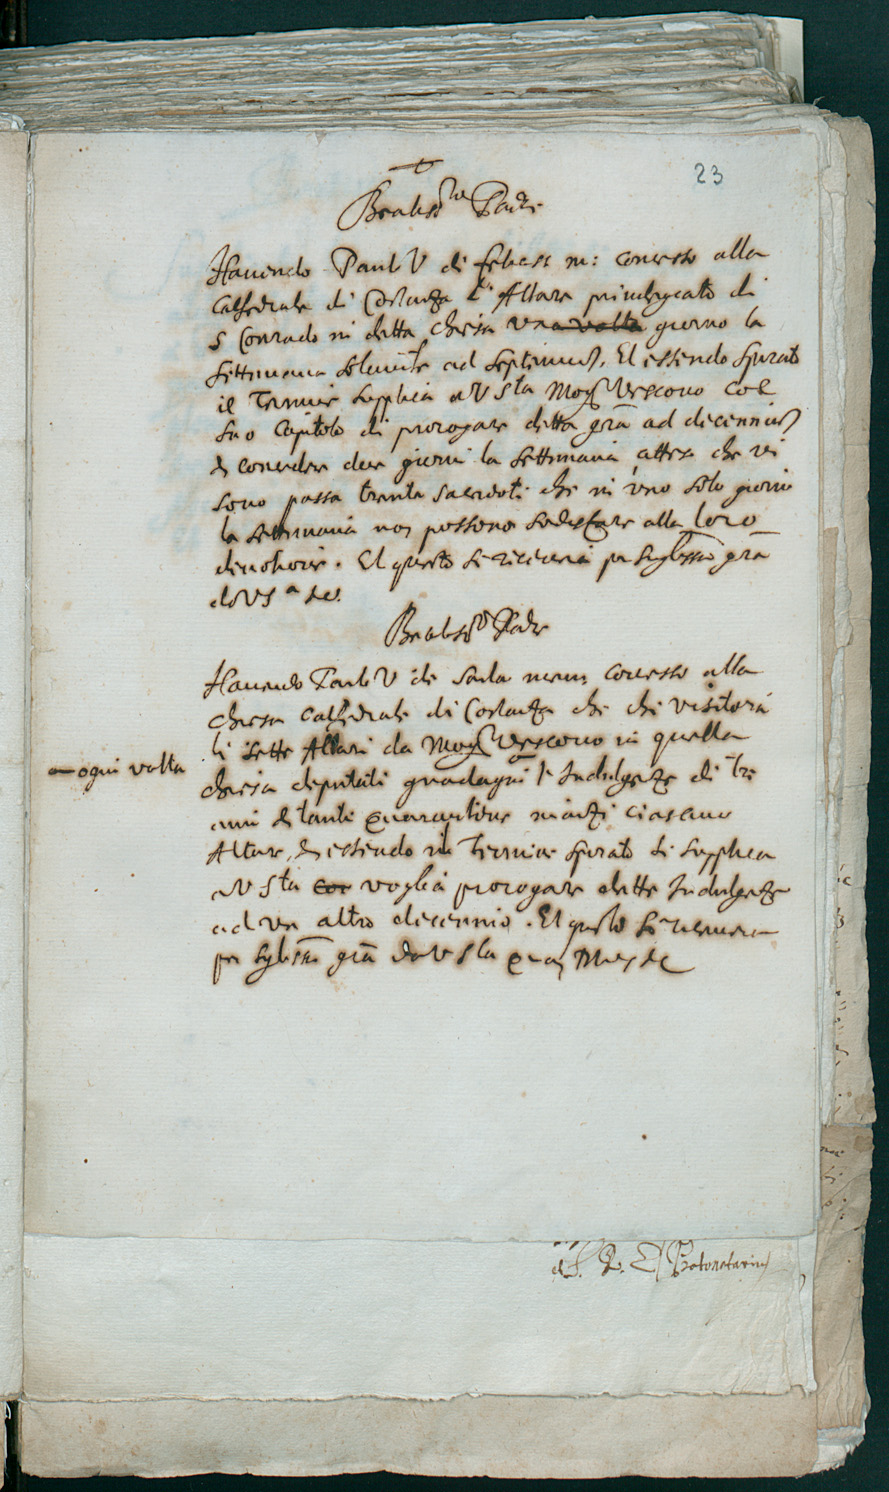 23
Beatiss.mo Padre
Havendo Paulo V di felice m: concesso alla
Cathedrale di Costanza l' Altare privilegiato di
S Conrado in detta chiesa una volta giorno la
settimana solamte ad septennium. Et essendo spirato
il Termine supplica a V Sta Monsr Vescovo col
suo Capitolo di prorogare detta gra ad decennium
et concedere due giorni la settimana, atteso che vi
sono passa trenta sacerdoti che in uno solo giorno
la settimana non possono sodisfare alla loro
divotione. Et questo si riceverà per singlissma gra
da V S.a
Beatiss.o Padre
Havendo Paulo V di santa mem. concesso alla
chiesa Cathedrale di Costanza che chi visitera
li sette Altari da Monsr Vescovo in quella
ogni volta
chiesa deputati guadagni l' Indulgenze di tre
anni et tante quarantene inanzi ciascuno
Altare, et essendo il Termine spirato si supplica
a V Sta voglia prorogare dette Indulgenze
ad un altro decennio. Et questo si ricevera
per singlissma gra da V Sta quam Deus etc
S. R. E. Protonotarius